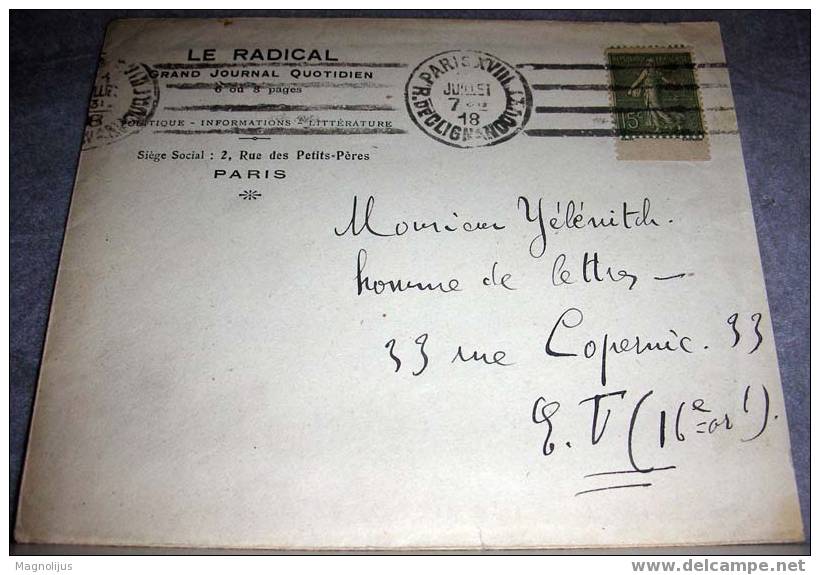 LE RADICAL
GRAND JOURNAL QUOTIDIEN
6 ou 8 pages
POLITIQUE - INFORMATIONS - LITTÉRATURE
Siège Social : 2, Rue des Petits-Pères
PARIS
PARIS XVIII
R. DE CLIGNANCOURT
JUILLET
18
15c
Monsieur Yélénitch.
homme de lettres —
33 rue Copernic. 33
E. V (16e arrt).
Magnolijus
delcampe.net